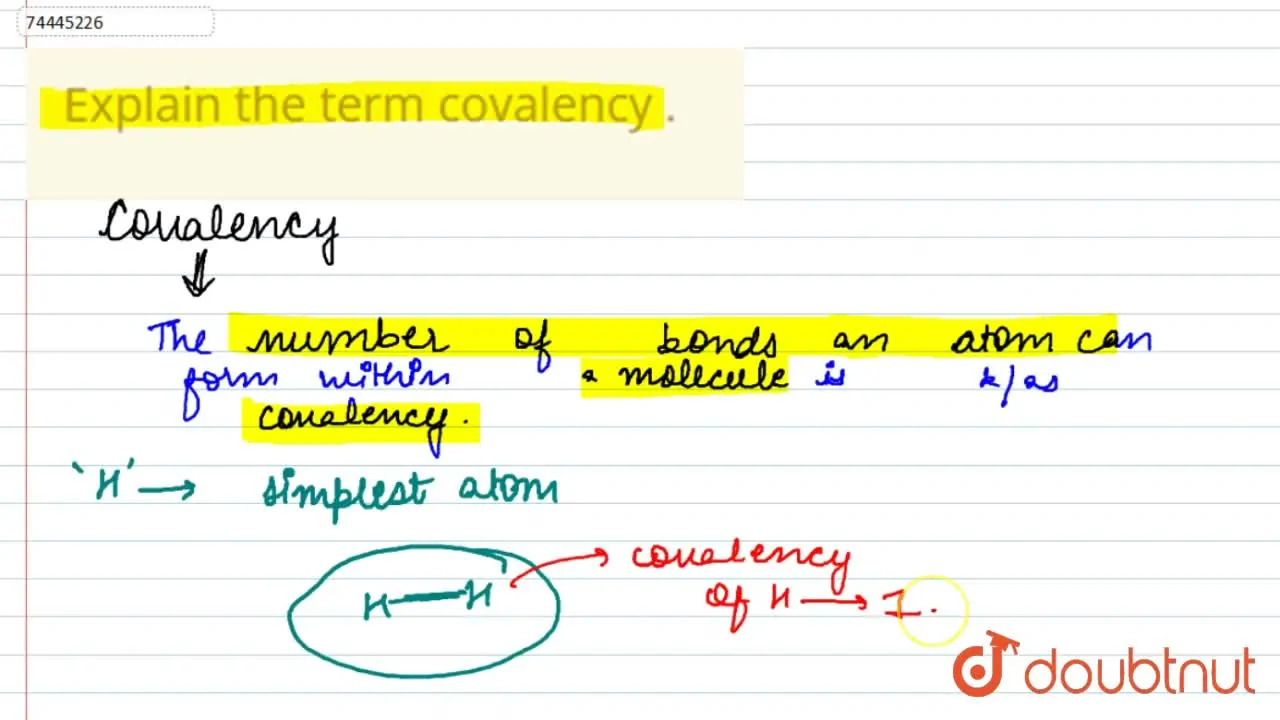 74445226
Explain the term covalency .
Covalency
The number of bonds an atom can
form within a molecule is k/as
covalency.
'H' → simplest atom
H—H
covalency
of H → I.
doubtnut